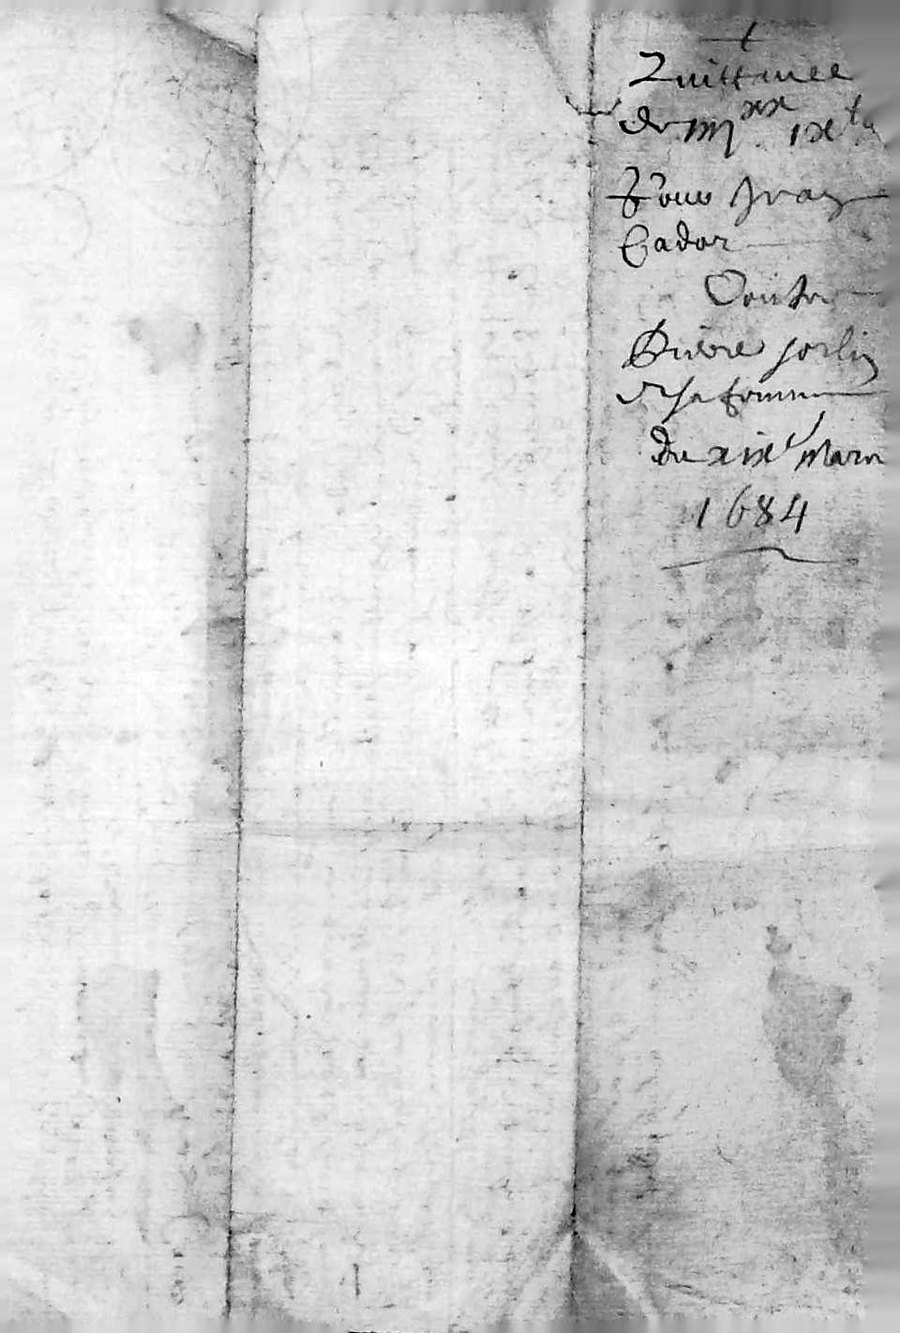 Quittance
de iiij xx ix lt
Pour Jean
Cador
Contre
Pierre Jorlin
et sa femme
Du xixe Mars
1684